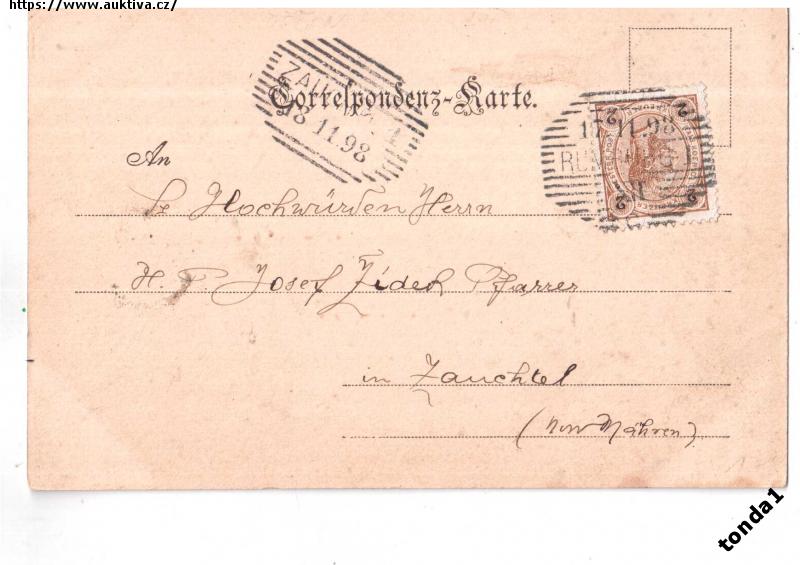 https://www.auktiva.cz/
Correspondenz-Karte.
18 11.98
11.98
2
2
2
2
An
Sr Hochwürden Herrn
H. P. Josef Židek Pfarrer
in Zauchtel
Mähren)
tonda1